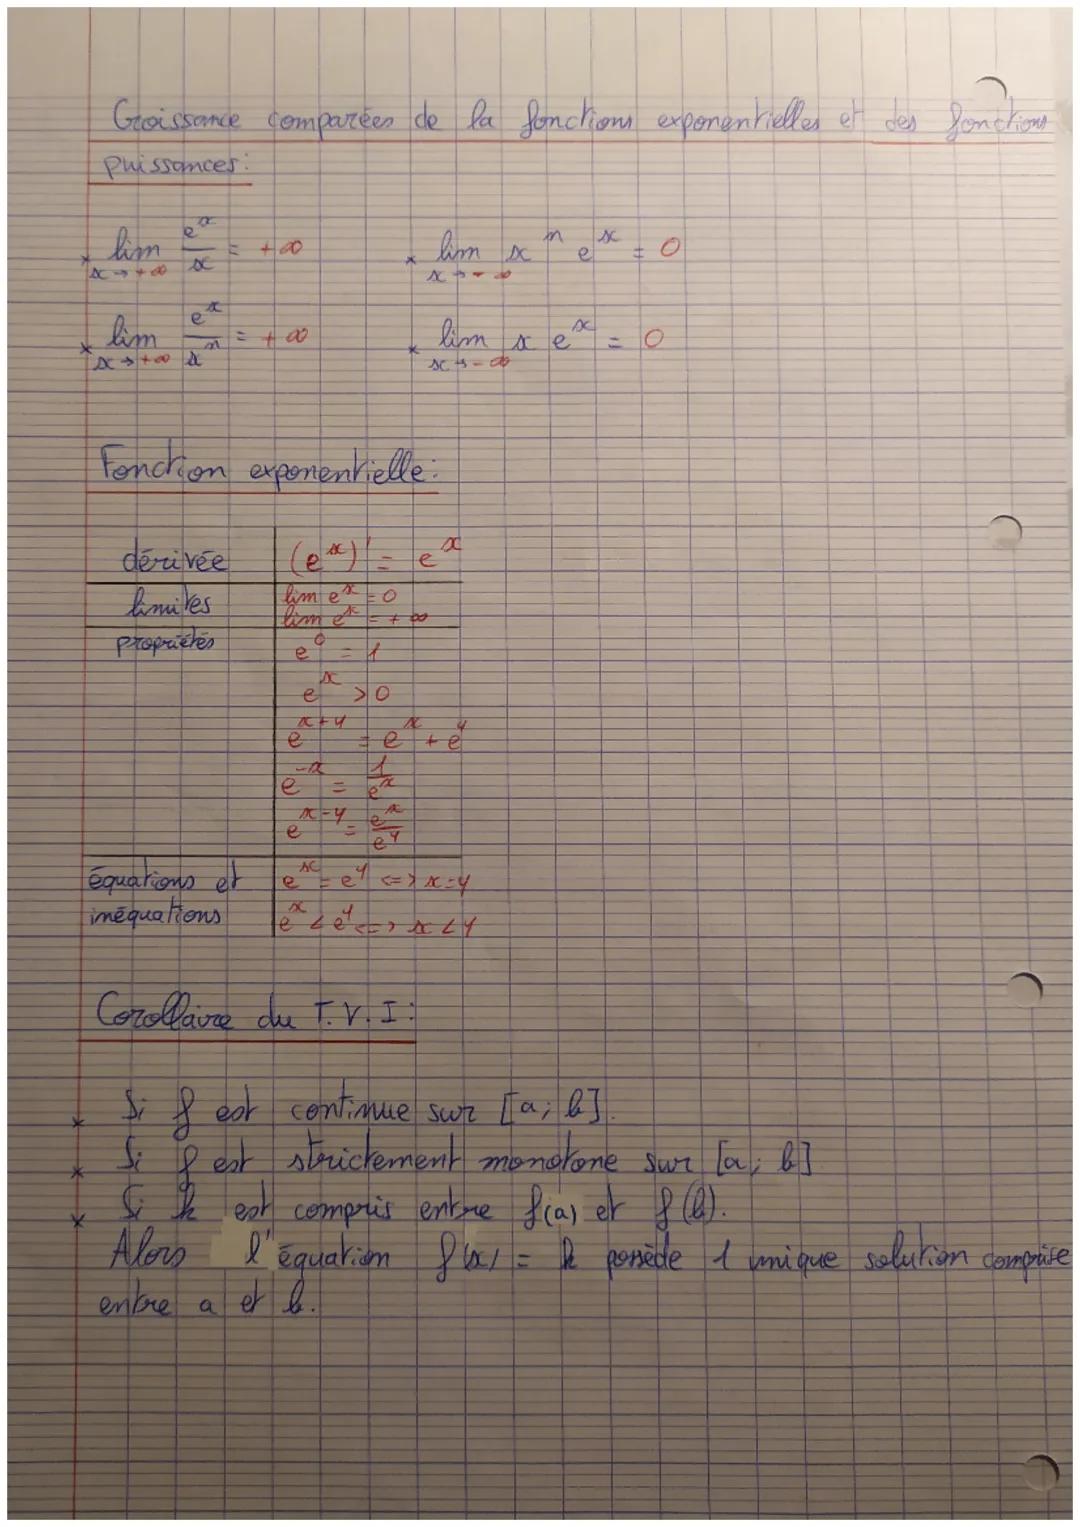 Croissance comparées de la fonctions exponentielles et des fonctions
puissances:
* lim x→+∞ e^x/x = +∞
* lim x→-∞ x^n e^x = 0
* lim x→+∞ e^x/x^n = +∞
* lim x→-∞ x e^x = 0
Fonction exponentielle:
dérivée (e^x)' = e^x
limites lim e^x = 0
lim e^x = +∞
propriétés
e^0 = 1
e^x > 0
e^(x+y) = e^x + e^y
e^(-x) = 1/e^x
e^(x-y) = e^x/e^y
équations et e^x = e^y <=> x=y
inéquations e^x < e^y <=> x < y
Corollaire du T.V.I:
* Si f est continue sur [a; b].
* Si f est strictement monotone sur [a; b]
* Si k est compris entre f(a) et f(b).
Alors l'équation f(x) = k possède 1 unique solution comprise
entre a et b.